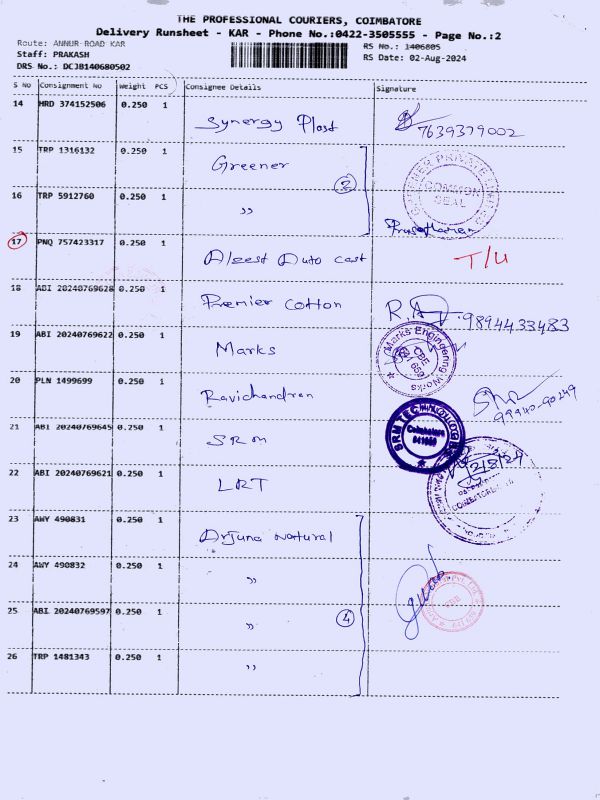 THE PROFESSIONAL COURIERS, COIMBATORE
Delivery Runsheet - KAR - Phone No.:0422-3505555 - Page No.:2
Route: ANNUR ROAD KAR
RS No.: 1406805
Staff: PRAKASH
RS Date: 02-Aug-2024
DRS No.: DCJB140680502
S No Consignment No Weight PCS Consignee Details Signature
14 MRD 374152506 0.250 1 Synergy Plast 7639379002
15 TRP 1316132 0.250 1 Greener
PRIVATE LIMITED
COMMON
SEAL
16 TRP 5912760 0.250 1 ,, 2
17 PNQ 757423317 0.250 1 Auto Cast T/U
18 ABI 20240769628 0.250 1 Premier Cotton 9894433483
19 ABI 20240769622 0.250 1 Marks
Marks Engineering Works
CBE
20 PLN 1499699 0.250 1 Ravichandran 99940-90249
21 ABI 20240769645 0.250 1 SRM
SRM TECHNOLOGIES
Coimbatore
22 ABI 20240769621 0.250 1 LRT
2/8/24
23 AWY 490831 0.250 1 Arjuna Natural
24 AWY 490832 0.250 1 ,,
25 ABI 20240769597 0.250 1 ,, 4
26 TRP 1481343 0.250 1 ,,